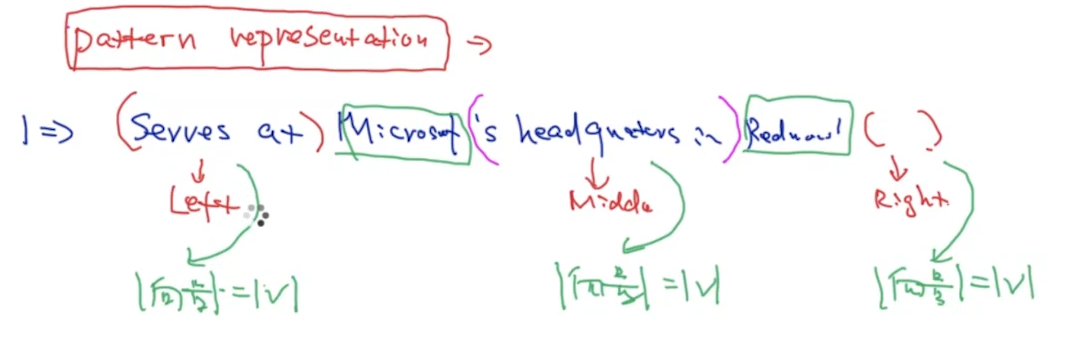 pattern representation →
1 ⇒ (Serves at) Microsof ('s headquaters in) Redmond ( )
Left Middle Right
= |V| = |V| = |V|